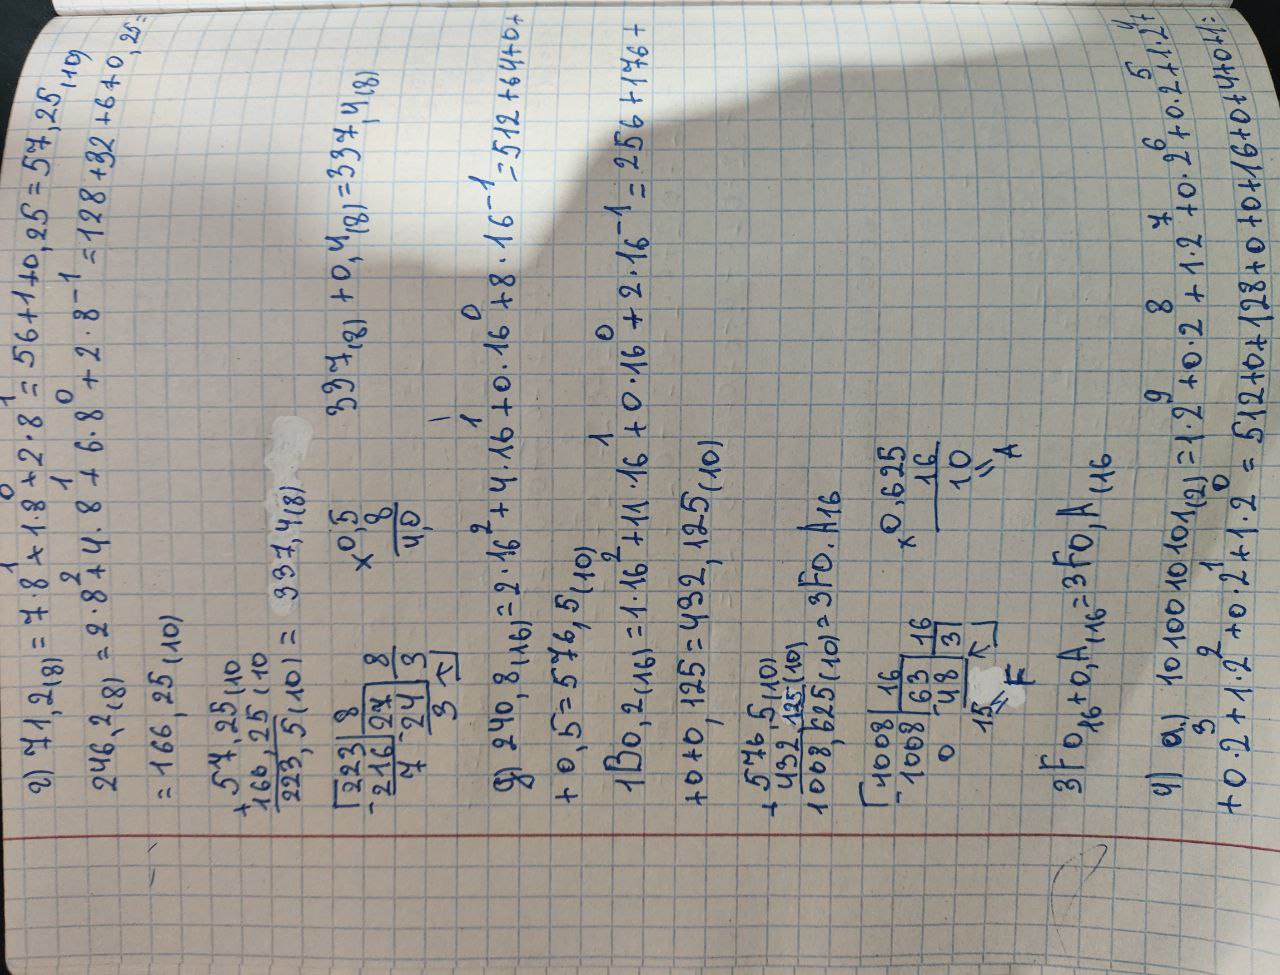 г) 71,2(8) = 7·8¹ + 1·8⁰ + 2·8¹ = 56+1+0,25 = 57,25(10)
246,2(8) = 2·8² + 4·8¹ + 6·8⁰ + 2·8⁻¹ = 128+32+6+0,25=
= 166,25(10)
+57,25(10
166,25(10
223,5(10) = 337,4(8)
223|8
-216|27|8
7 -24|3
3
×0,5
8
4,0
337(8) + 0,4(8) = 337,4(8)
д) 240,8(16) = 2·16² + 4·16¹ + 0·16⁰ + 8·16⁻¹ = 512+64+0+
+0,5 = 576,5(10)
1B0,2(16) = 1·16² + 11·16¹ + 0·16⁰ + 2·16⁻¹ = 256+176+
+0+0,125 = 432,125(10)
+576,5(10)
432,125(10)
1008,625(10) = 3F0.A16
1008|16
-1008|63|16
0 -48|3
15
F
×0,625
16
10
A
3F0₁₆ + 0,A(16 = 3F0,A(16
4) a) 1010010101(2) = 1·2⁹ + 0·2⁸ + 1·2⁷ + 0·2⁶ + 0·2⁵ + 1·2⁴+
+0·2³ + 1·2² + 0·2¹ + 1·2⁰ = 512+0+128+0+0+16+0+4+0+1=